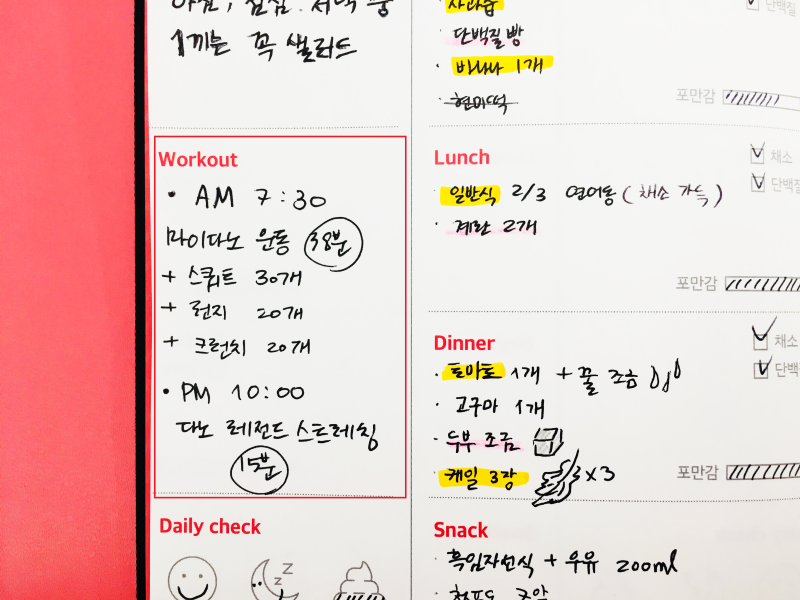 아침, 점심, 저녁 중
1끼는 꼭 샐러드
Workout
• AM 7:30
마이다노 운동 38분
+ 스쿼트 30개
+ 런지 20개
+ 크런치 20개
• PM 10:00
다노 레전드 스트레칭
15분
Daily check
z z z
· 사과즙
단백질빵
· 바나나 1개
· 현미떡
단백질
포만감
Lunch
· 일반식 2/3 연어동 (채소 가득)
· 계란 2개
채소
단백질
포만감
Dinner
· 토마토 1개 + 꿀 조금
· 고구마 1개
· 두부 조금
· 케일 3장 x3
채소
단백
포만감
Snack
· 흑임자선식 + 우유 200ml